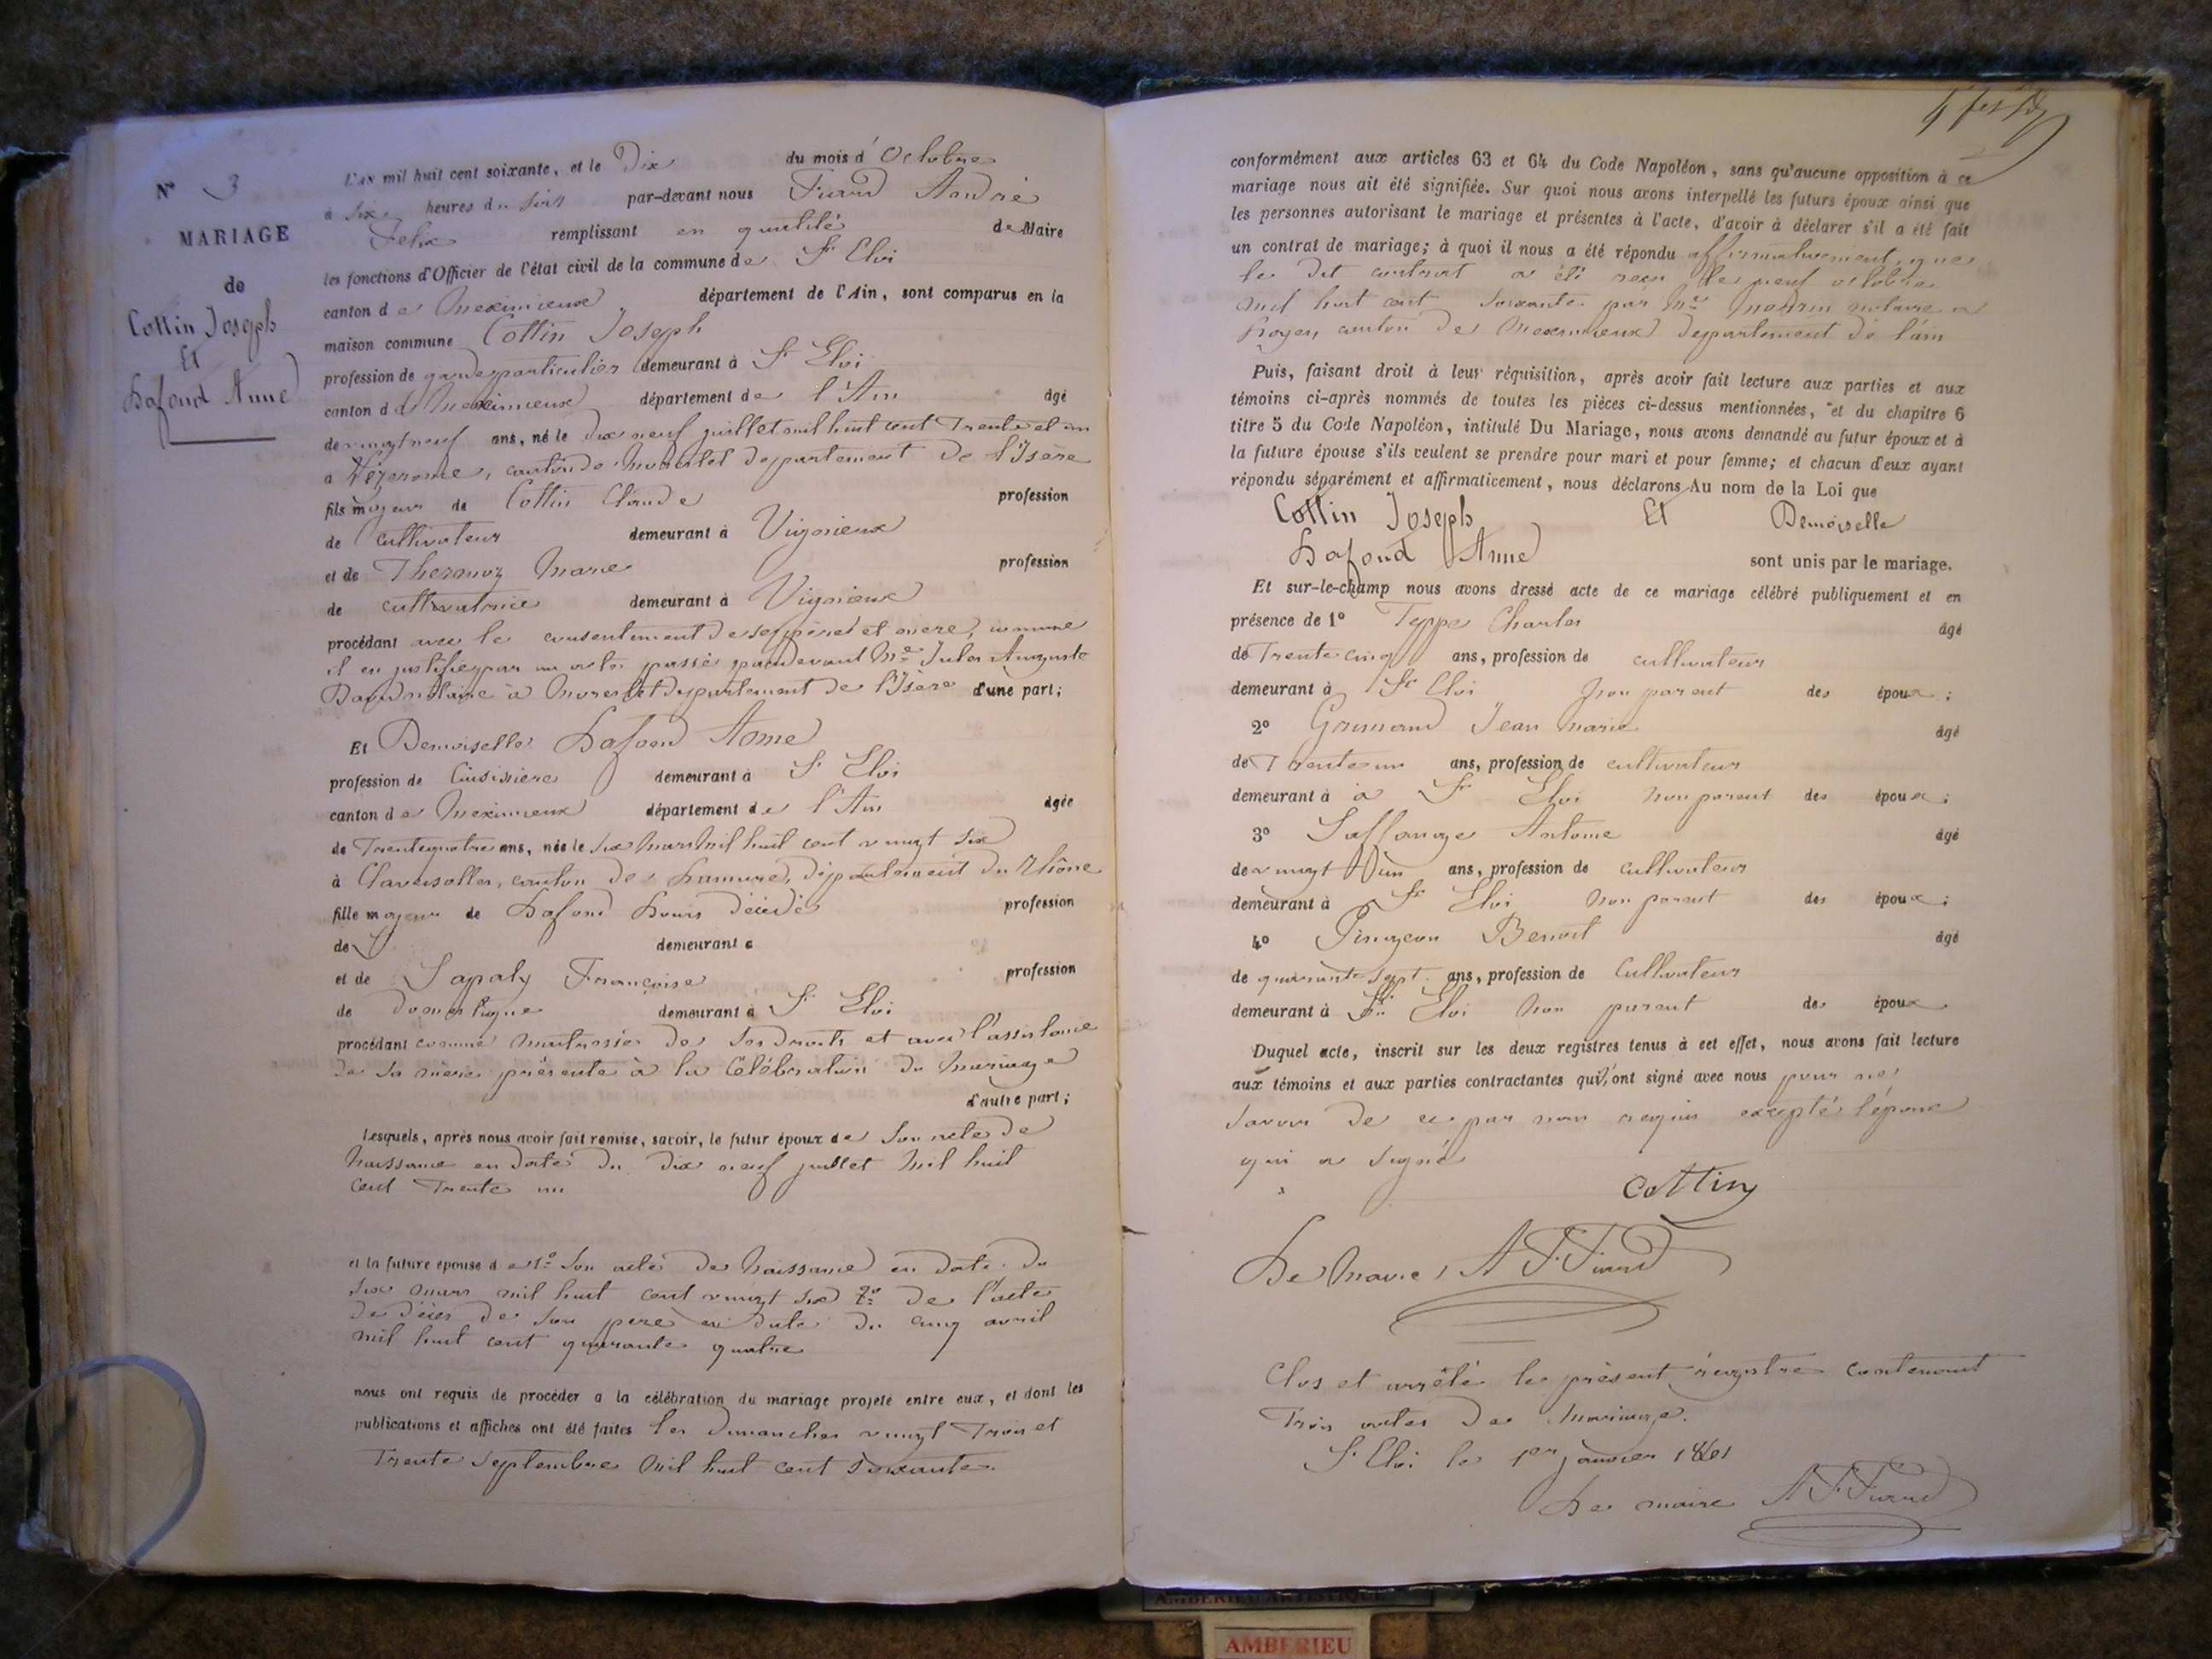 N° 3
MARIAGE
de
Cottin Joseph
Et
Lafond Anne
L'an mil huit cent soixante, et le Dix du mois d'Octobre
à Six heures du Soir par-devant nous André
Felix remplissant en qualité de Maire
les fonctions d'Officier de l'état civil de la commune de St Eloi
canton de Meximieux département de l'Ain, sont comparus en la
maison commune Cottin Joseph
profession de garde particulier demeurant à St Eloi
canton de Meximieux département de l'Ain âgé
de vingt neuf ans, né le dix neuf juillet mil huit cent Trente et un
a Vézeronce, canton de Morestel département de l'Isère
fils majeur de Cottin Claude profession
de Cultivateur demeurant à Vignieux
et de Thermoz Marie profession
de cultivatrice demeurant à Vignieux
procédant avec le consentement de ses père et mère, comme
il en justifie par un acte passé pardevant Me Jules Auguste
notaire à Morestel département de l'Isère d'une part;
Et Demoiselle Lafond Anne
profession de Cuisiniere demeurant à St Eloi
canton de Meximieux département de l'Ain âgée
de Trente quatre ans, née le Six Mars Mil huit cent vingt Six
à Claveisolles, canton de Lamure, département du Rhône
fille majeure de Lafond Louis décédé profession
de demeurant à
et de Sapaly Françoise profession
de domestique demeurant à St Eloi
procédant comme maitresse de Ses droits et avec l'assistance
de Sa mère présente à la Célébration du Mariage
d'autre part;
Lesquels, après nous avoir fait remise, savoir, le futur époux de Son acte de
Naissance en date du Dix neuf juillet Mil huit
cent Trente un
et la future épouse de 1° Son acte de Naissance en date du
Six Mars mil huit cent vingt Six 2° de l'acte
de décès de Son pere en date du cinq avril
mil huit cent quarante quatre
nous ont requis de procéder à la célébration du mariage projeté entre eux, et dont les
publications et affiches ont été faites les Dimanches vingt Trois et
Trente Septembre Mil huit cent Soixante.
conformément aux articles 63 et 64 du Code Napoléon, sans qu'aucune opposition à ce
mariage nous ait été signifiée. Sur quoi nous avons interpellé les futurs époux ainsi que
les personnes autorisant le mariage et présentes à l'acte, d'avoir à déclarer s'il a été fait
un contrat de mariage; à quoi il nous a été répondu affirmativement, que
le dit contrat a été reçu le neuf octobre
mil huit cent Soixante par Me notaire a
Loyes, canton de Meximieux département de l'ain
Puis, faisant droit à leur réquisition, après avoir fait lecture aux parties et aux
témoins ci-après nommés de toutes les pièces ci-dessus mentionnées, et du chapitre 6
titre 5 du Code Napoléon, intitulé Du Mariage, nous avons demandé au futur époux et à
la future épouse s'ils veulent se prendre pour mari et pour femme; et chacun d'eux ayant
répondu séparément et affirmativement, nous déclarons Au nom de la Loi que
Cottin Joseph Et Demoiselle
Lafond Anne sont unis par le mariage.
Et sur-le-champ nous avons dressé acte de ce mariage célébré publiquement et en
présence de 1° Teppe Charles âgé
de Trente cinq ans, profession de cultivateur
demeurant à St Eloi non parent des époux;
2° Jean Marie âgé
de Trente un ans, profession de cultivateur
demeurant à à St Eloi non parent des époux;
3° Antoine âgé
de vingt ans, profession de cultivateur
demeurant à St Eloi Non parent des époux;
4° Benoit âgé
de quarante Sept ans, profession de Cultivateur
demeurant à St Eloi Non parent des époux
Duquel acte, inscrit sur les deux registres tenus à cet effet, nous avons fait lecture
aux témoins et aux parties contractantes qui l'ont signé avec nous pour ne
Savoir de ce par nous requis excepté l'époux
qui a Signé
Cottin
Le Maire
Clos et arrêté le présent registre contenant
Trois actes de Mariage.
St Eloi le 1er janvier 1861
Le maire
AMBERIEU ARTISTIQUE
AMBERIEU